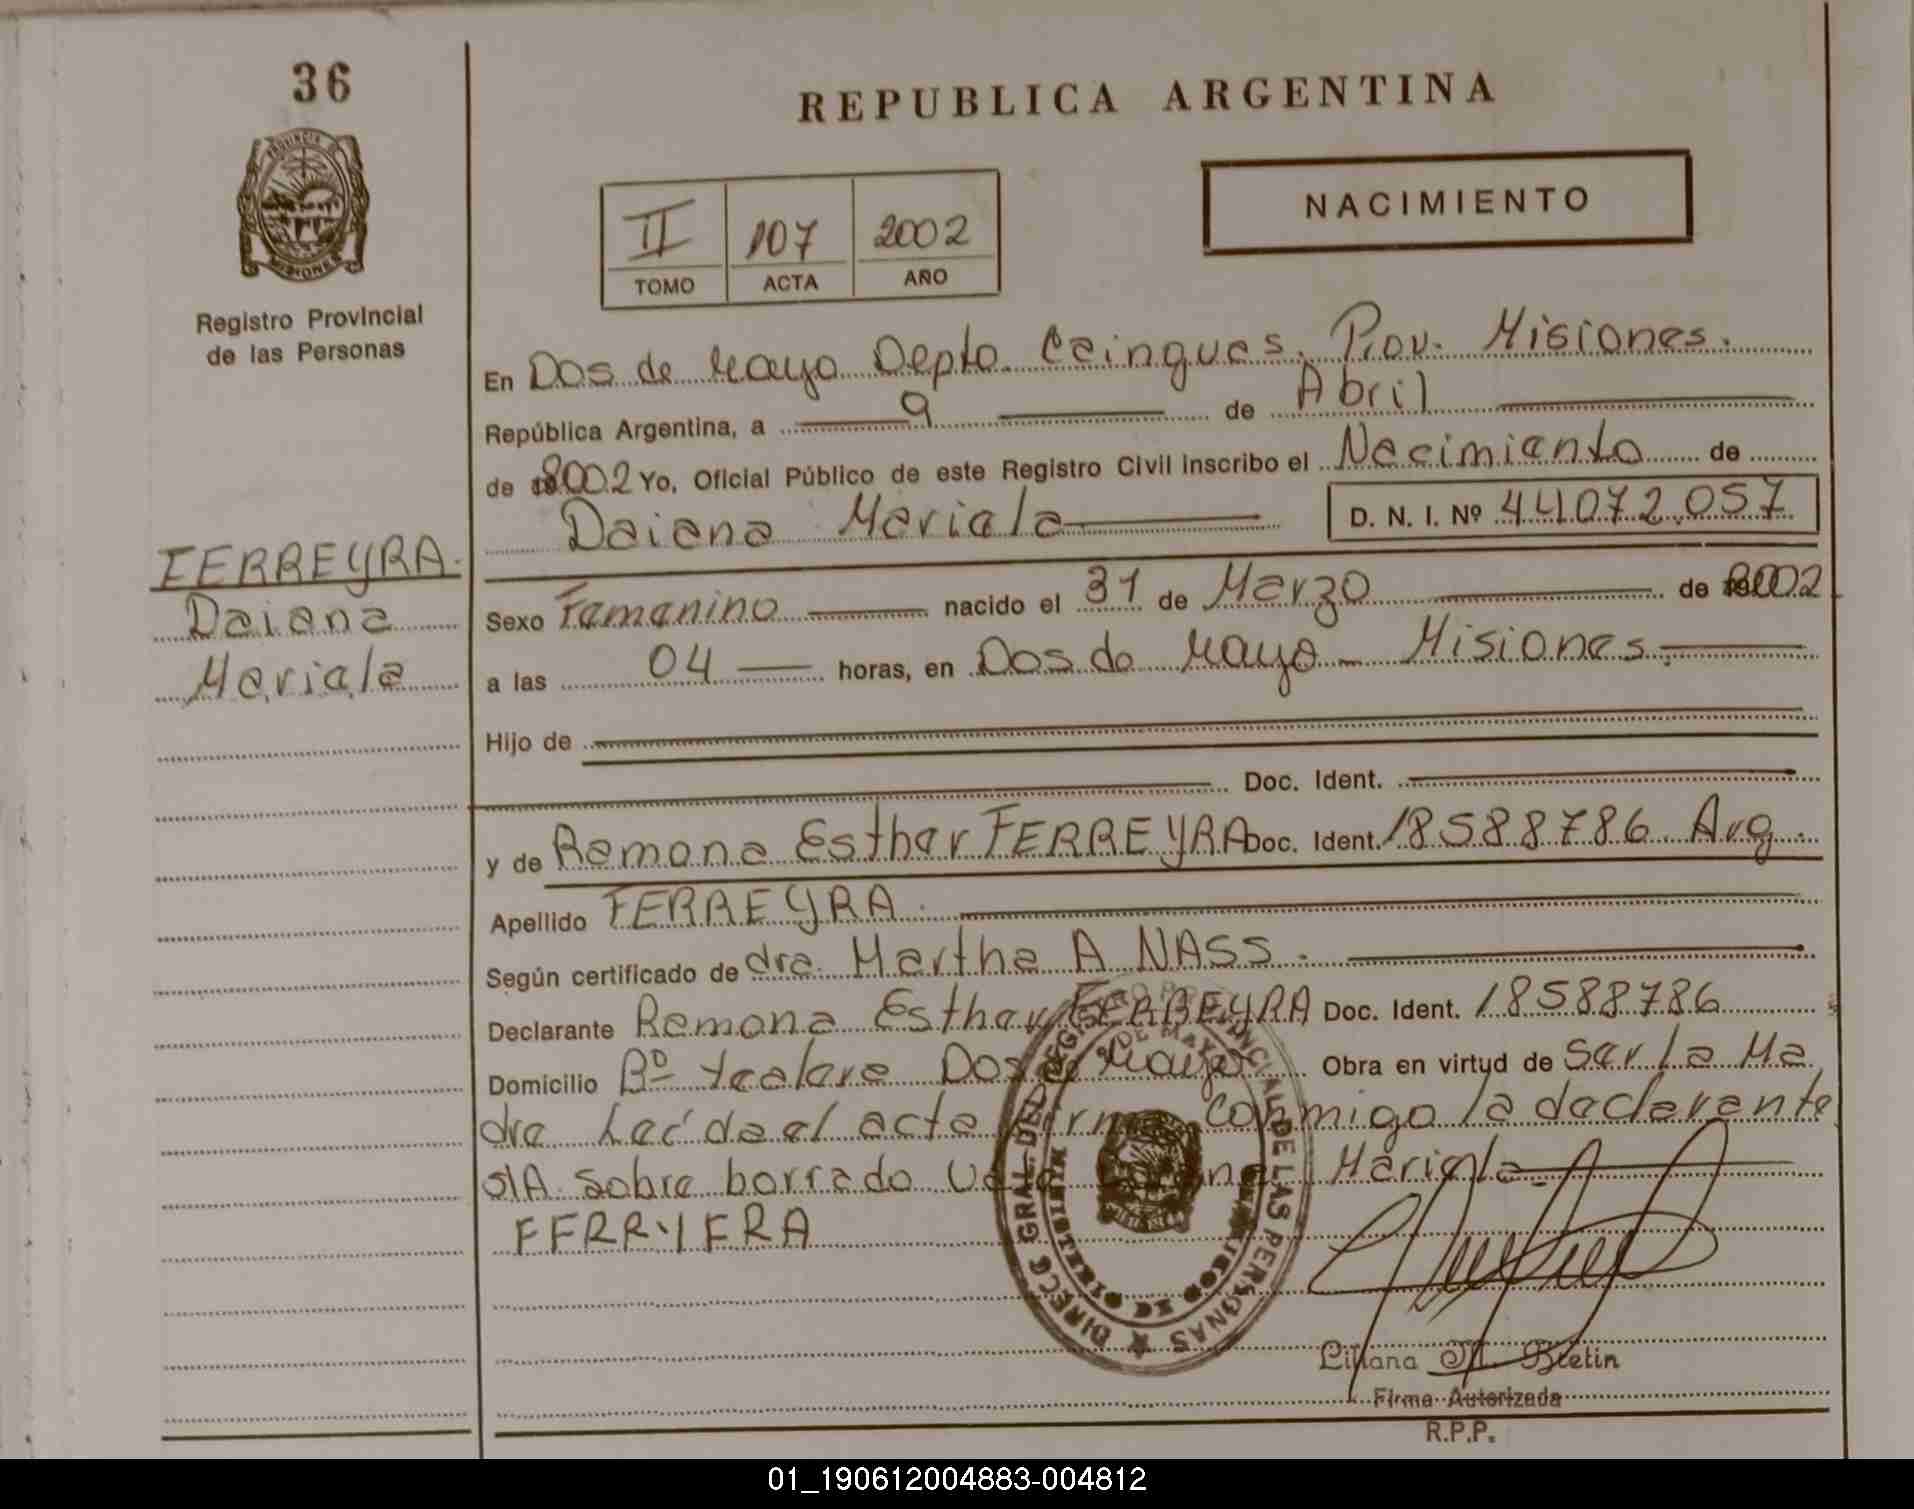 36
REPUBLICA ARGENTINA
NACIMIENTO
II 107 2002
TOMO ACTA AÑO
Registro Provincial
de las Personas
FERREYRA.
Daiana
Mariela
En Dos de Mayo Depto. Cainguas. Prov. Misiones.
República Argentina, a 9 de Abril
de 2002 Yo, Oficial Público de este Registro Civil inscribo el Nacimiento de
Daiana Mariela D. N. I. Nº 44072.057
Sexo Femenino nacido el 31 de Marzo de 2002
a las 04 horas, en Dos de Mayo - Misiones.
Hijo de
Doc. Ident.
y de Ramona Esther FERREYRA Doc. Ident. 18588786 Arg.
Apellido FERREYRA.
Según certificado de dra. Martha A NASS.
Declarante Ramona Esther FERREYRA Doc. Ident. 18588786
Domicilio Bº Dos de Mayo Obra en virtud de Ser La Ma
dre Leída el acta firma conmigo la declarante
S/A Sobre borrado Vale Mariela
FERRYERA
DIRECC GRAL. DEL REGISTRO PROVINCIAL DE LAS PERSONAS
DE MAYO
MINISTERIO DE GOBIERNO
Liliana M. Bretin
Firma Autorizada
R.P.P.
01_190612004883-004812